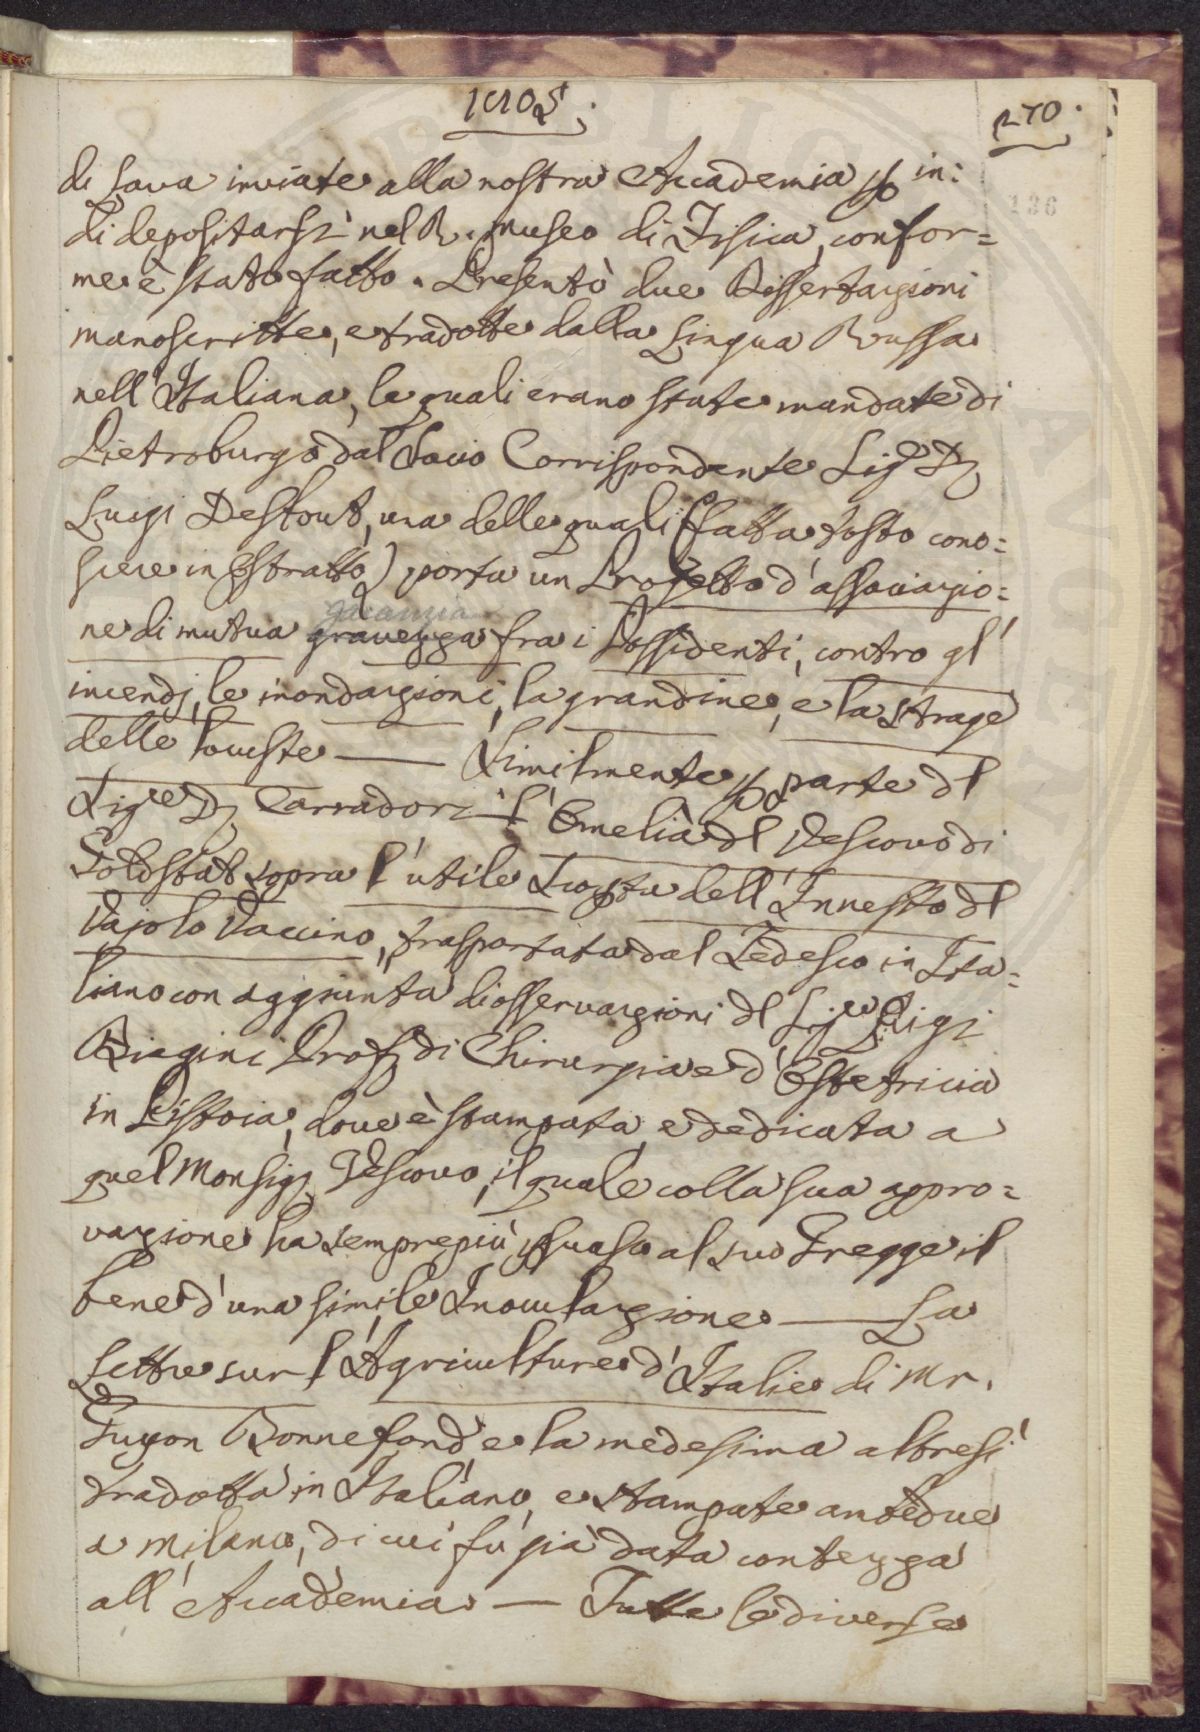 1805.
270.
136
di Lava inviate alla nostra Accademia p in:
di depositarsi nel R. Museo di Fisica, confor=
me è stato fatto. Presentò due Dissertazioni
manoscritte, e tradotte dalla Lingua Russa
nell'Italiana, le quali erano state mandate di
Pietroburgo dal Socio Corrispondente Sigr. D
Luigi Destout, una delle quali (fatta tosto cono=
scere in Estratto) porta un Progetto d'associazio=
garanzia
ne di mutua gravezza fra i Possidenti, contro gl'
incendj, le inondazioni, la grandine, e la strage
delle locuste — Similmente p parte dl
Sigre D Carradori l'Omelia dl Vescovo di
Goldstat sopra l'utile Scoperta dell'Innesto dl
Vajolo Vaccino, trasportata dal Tedesco in Ita=
liano con aggiunta di osservazioni dl Sigre Luigi
Biagini Prof. di Chirurgia e d'Ostetricia
in Pistoia, dove è stampata, e dedicata a
quel Monsig. Vescovo, il quale colla sua appro=
vazione ha sempre più psuaso al suo Gregge il
bene d'una simile Inoculazione — La
Lettre sur l'Agriculture d'Italie di Mr.
Guyon Bonnefond e la medesima altresì
tradotta in Italiano, e stampate antedue
a Milano, di cui fù già data contezza
all'Accademia — Tutte le diverse